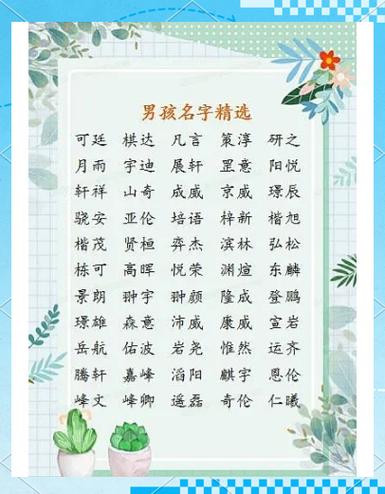 男孩名字精选
可廷 棋达 凡言 策淳 研之
月雨 宇迪 展轩 罡意 阳悦
轩祥 山奇 成威 京威 璟辰
骁安 亚伦 培语 梓新 楷旭
楷茂 贤桓 弈杰 滨林 弘松
栋可 高晖 悦荣 渊煊 东麟
景朗 翀宇 翀颜 隆成 登鹏
璟雄 森意 沛威 康威 宣岩
岳航 佑波 岩尧 惟然 运齐
腾轩 嘉峰 滔阳 麒宇 恩伦
峰文 峰卿 遥磊 奇伦 仁曦